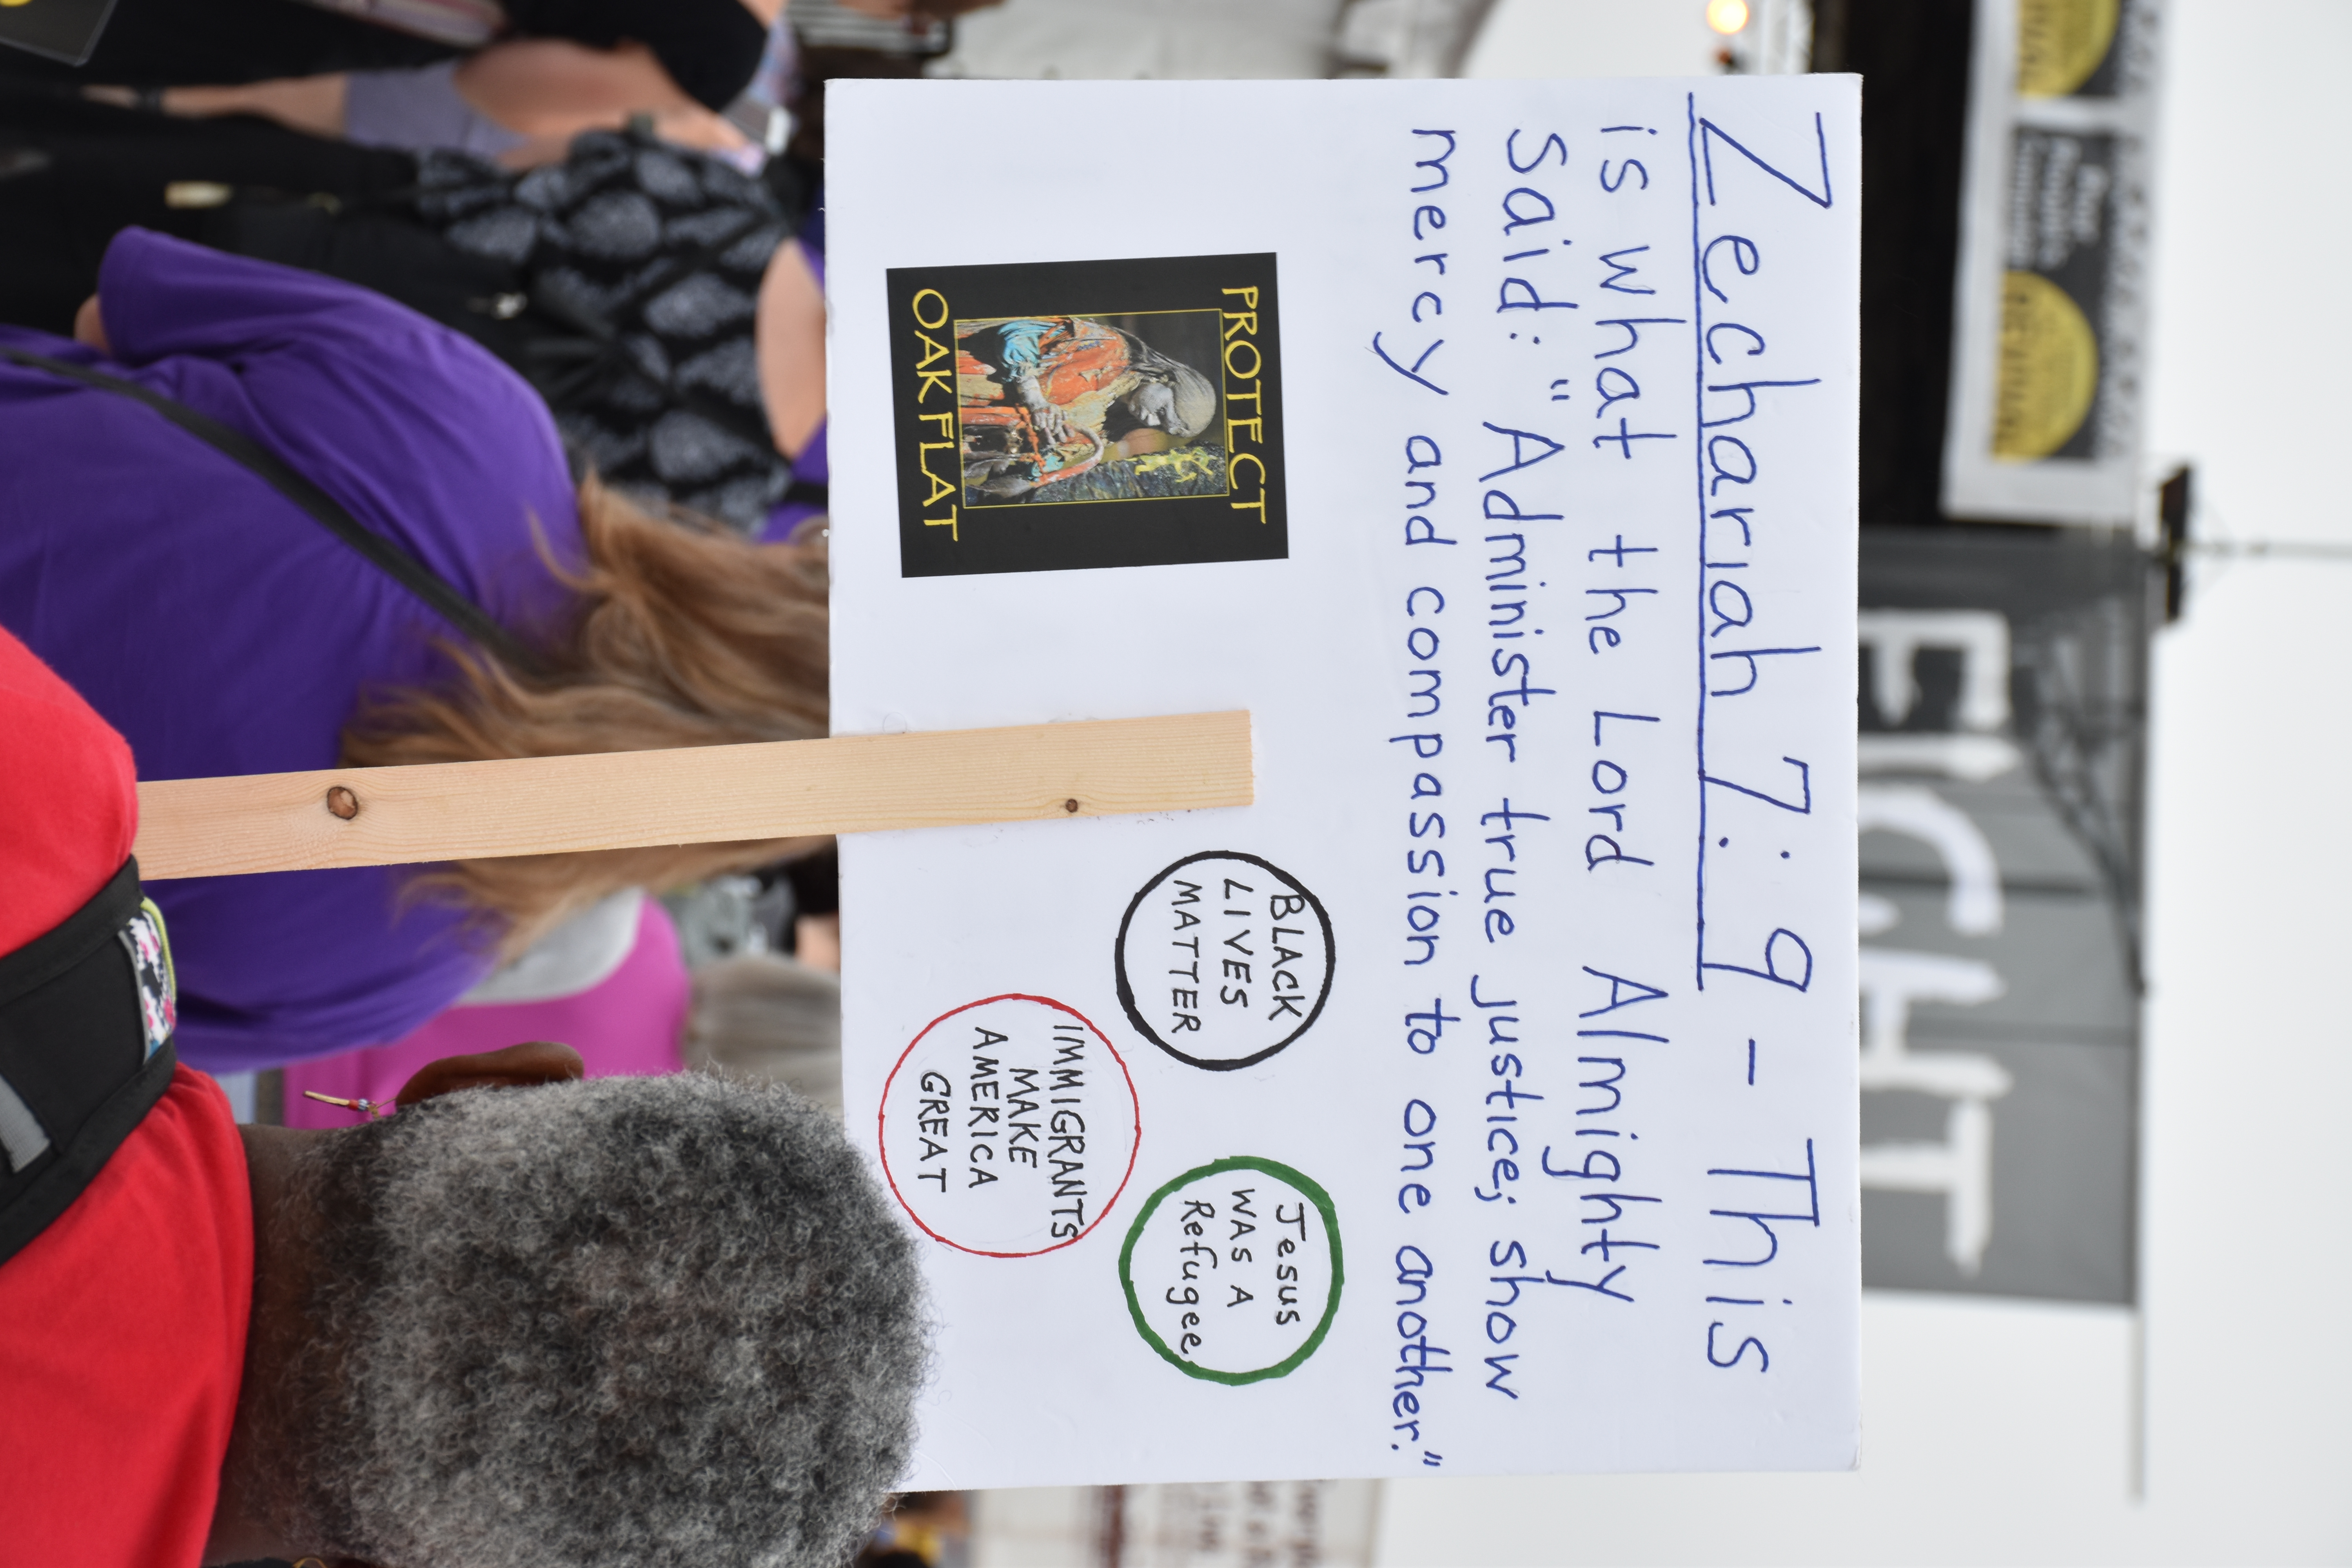 Zechariah 7:9 - This
is what the Lord Almighty
said: "Administer true justice; show
mercy and compassion to one another."
PROTECT
OAK FLAT
BLACK
LIVES
MATTER
Jesus
WAS A
Refugee
IMMIGRANTS
MAKE
AMERICA
GREAT